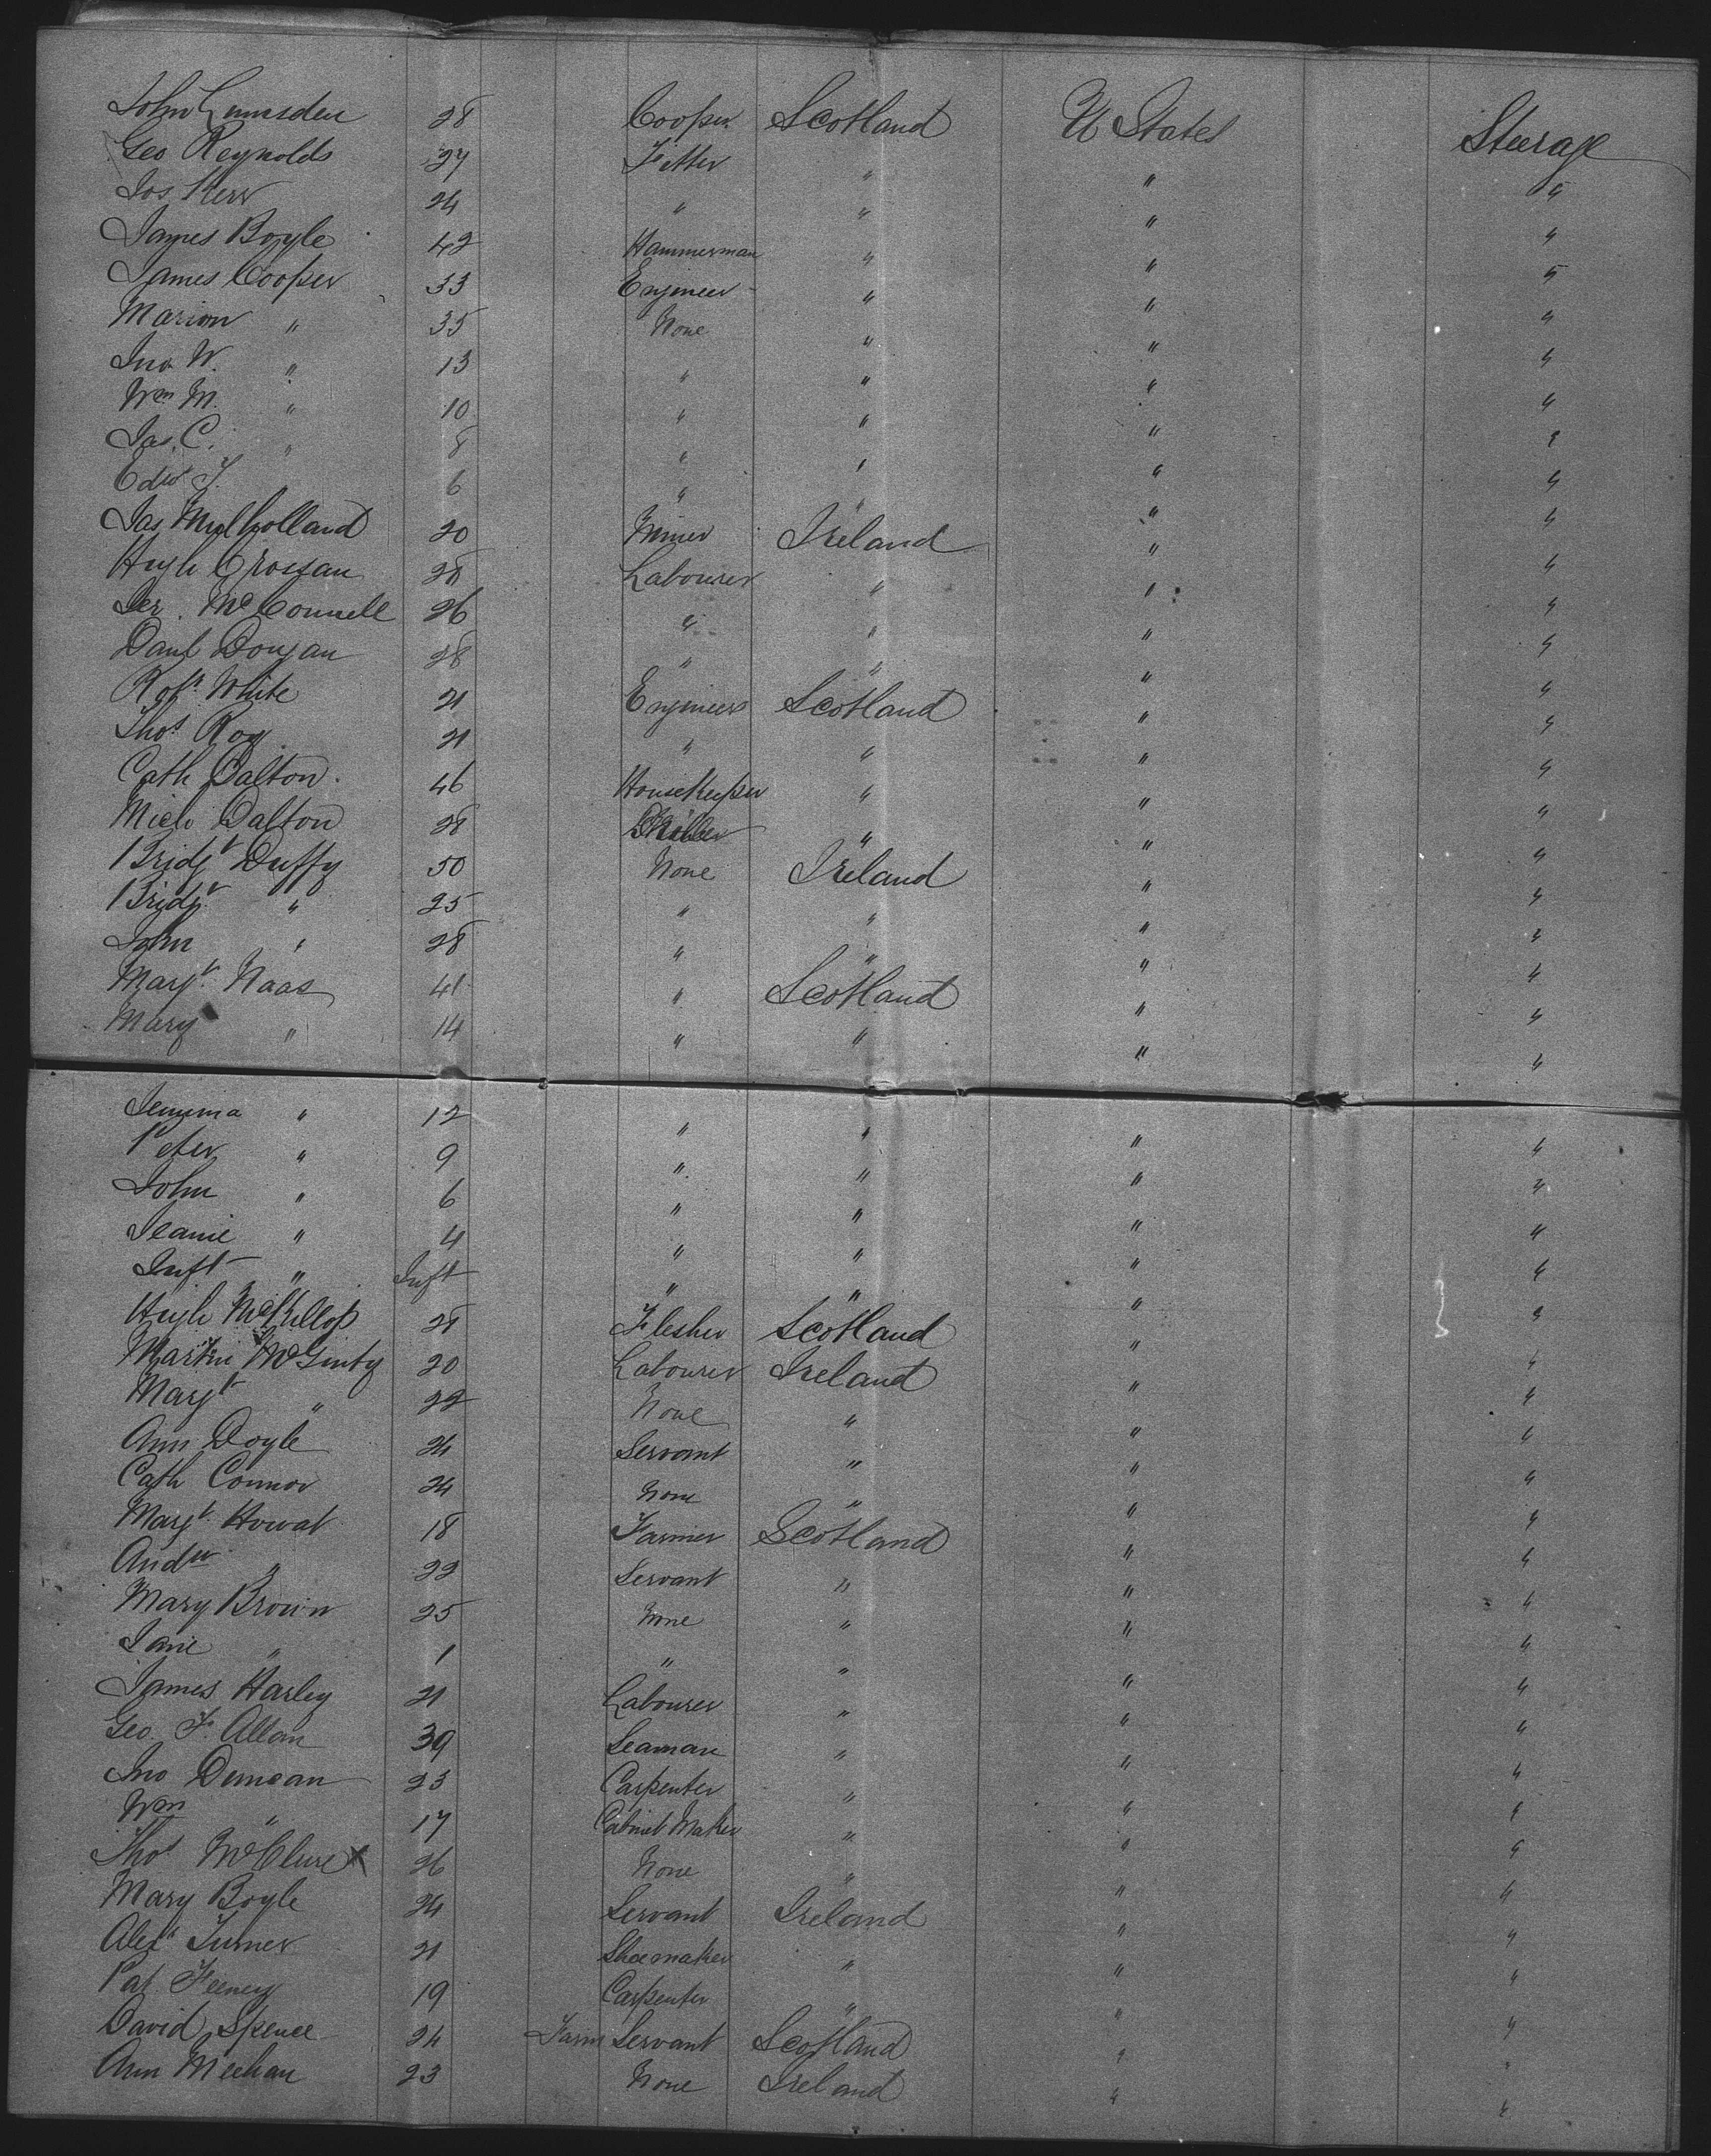 John Lumsden 28 Cooper Scotland U States Steerage
Geo Reynolds 27 Fitter " " "
Jos Kerr 24 " " " "
James Boyle 42 Hammerman " " "
James Cooper 33 Engineer " " "
Marion " 35 None " " "
Jno W. " 13 " " " "
Wm M. " 10 " " " "
Jas. C. " 8 " " " "
Edw J. " 6 " " " "
Jas Mulholland 20 Miner Ireland " "
Hugh Crossan 28 Labourer " " "
Jer. McConnell 26 " " " "
Danl Dougan 28 " " " "
Robt. White 21 Engineer Scotland " "
Thos Roy 21 " " " "
Cath Dalton 46 Housekeeper " " "
Mich Dalton 28 " " "
Bridgt Duffy 50 None Ireland " "
Bridgt " 25 " " " "
John " 28 " " " "
Margt. Naas 41 " Scotland " "
Mary " 14 " " " "
Jemima " 12 " " " "
Peter " 9 " " " "
John " 6 " " " "
Jeanie " 4 " " " "
Inft " Inft " " " "
Hugh McKillop 21 Flesher Scotland " "
Martin McGinty 20 Labourer Ireland " "
Margt " 22 None " " "
Ann Doyle 24 Servant " " "
Cath Connor 24 None " " "
Margt. Howat 18 Farmer Scotland " "
Andw " 22 Servant " " "
Mary Brown 25 None " " "
Jane " 1 " " " "
James Harley 21 Labourer " " "
Geo. F. Allan 39 Seaman " " "
Jno Duncan 23 Carpenter " " "
Wm " 17 Cabinet Maker " " "
Thos McClure x 26 None " " "
Mary Boyle 24 Servant Ireland " "
Alexr Turner 21 Shoemaker " " "
Pat Feeney 19 Carpenter " " "
David Spence 24 Farm Servant Scotland " "
Ann Meehan 23 None Ireland " "